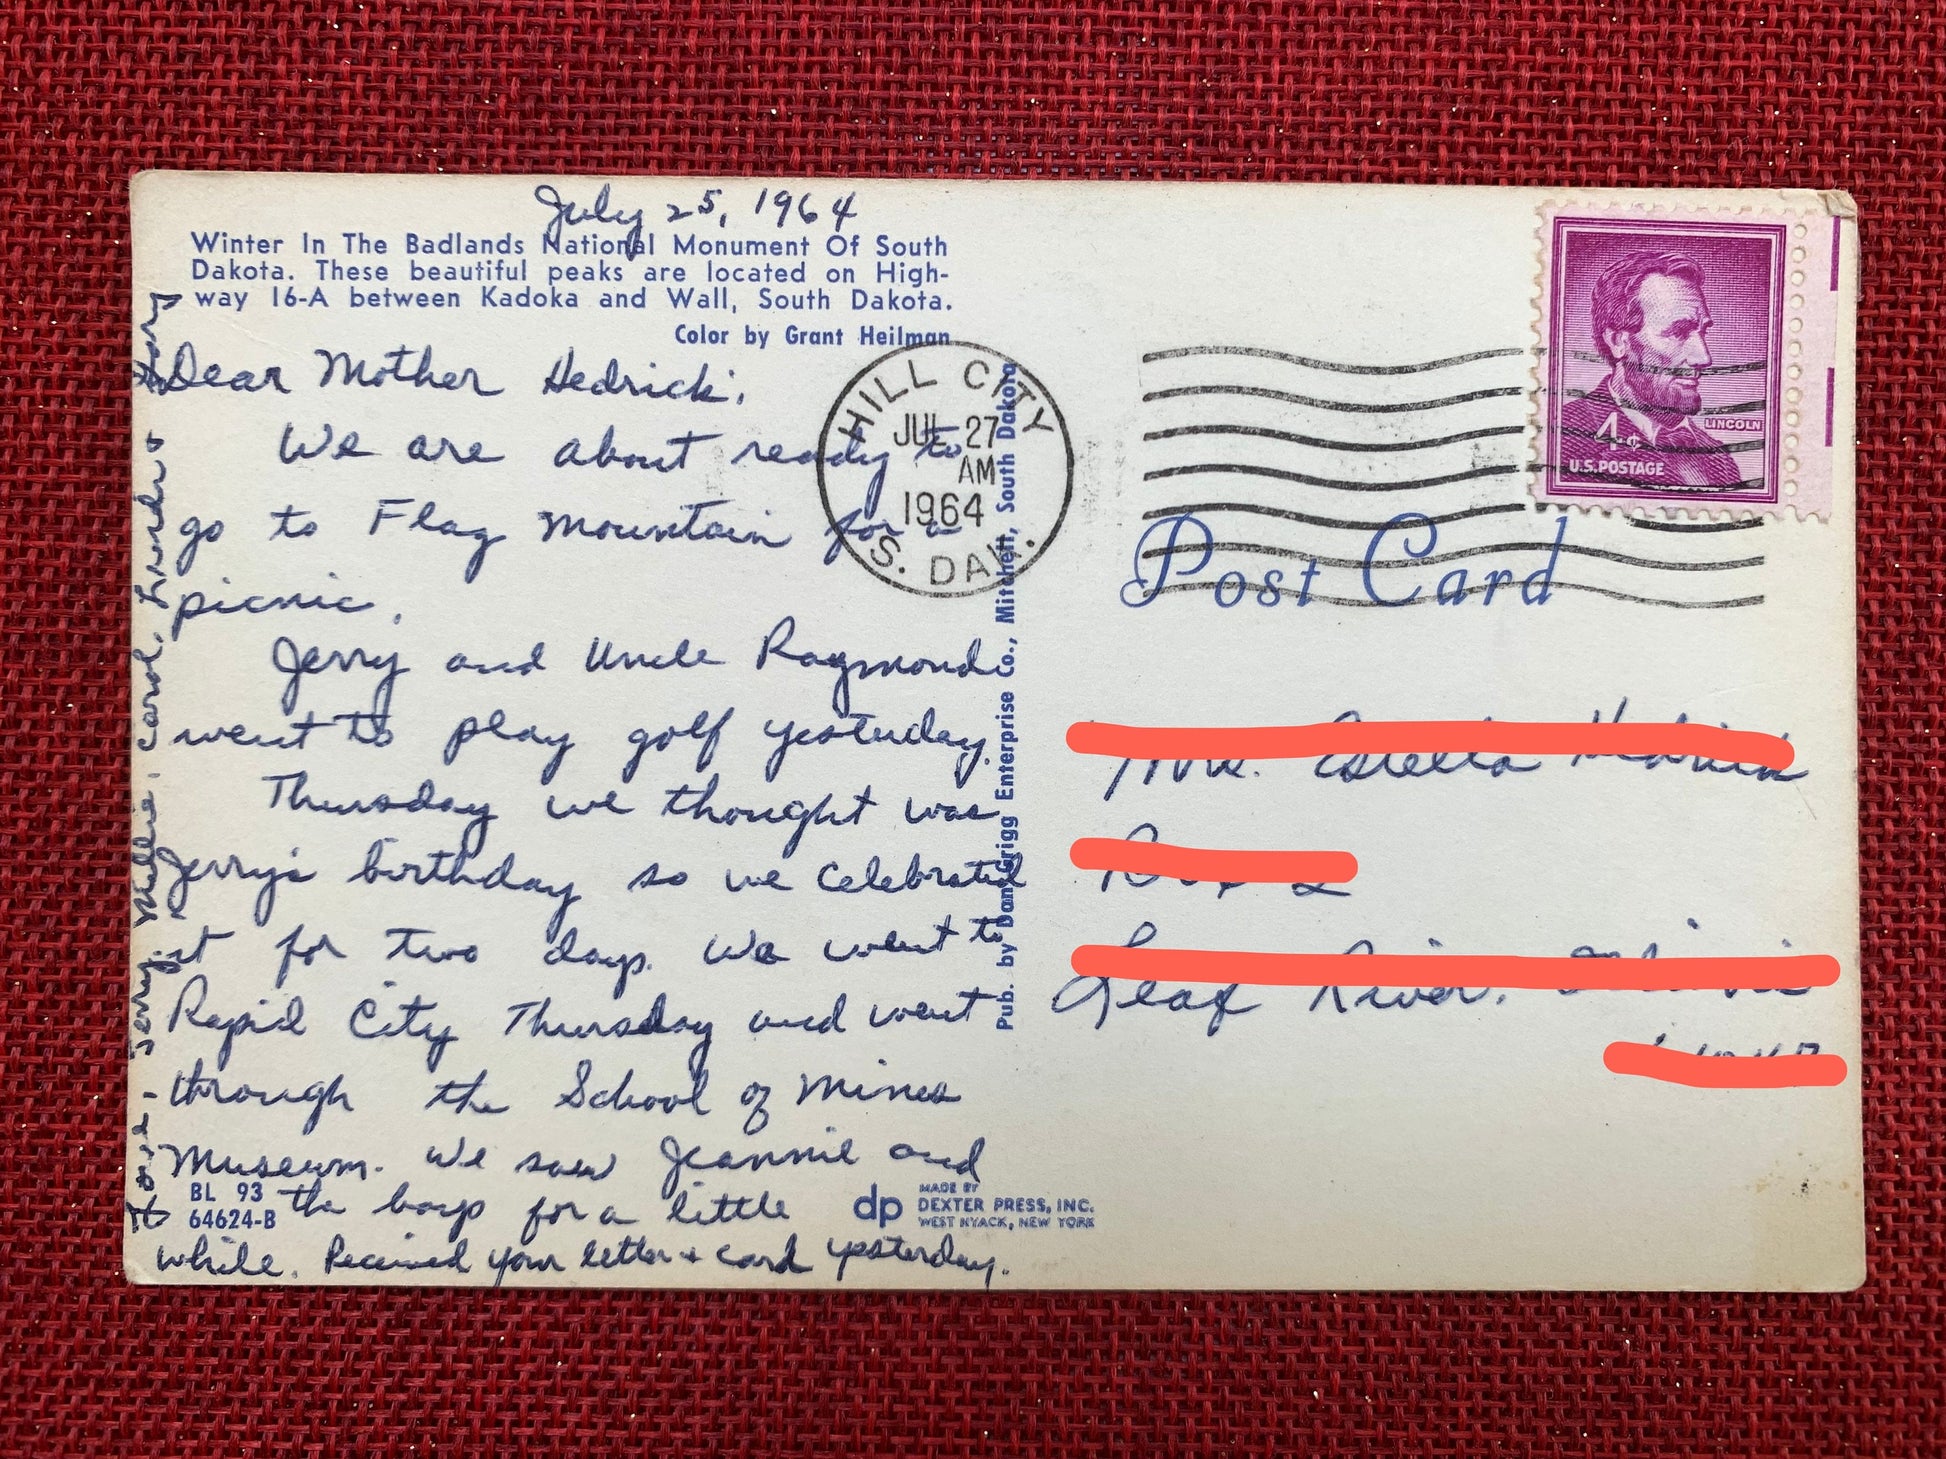 July 25, 1964
Winter In The Badlands National Monument Of South
Dakota. These beautiful peaks are located on High-
way 16-A between Kadoka and Wall, South Dakota.
Color by Grant Heilman
Dear Mother Hedrick,
We are about ready to
go to Flag Mountain for a
picnic.
Jerry and Uncle Raymond
went to play golf yesterday.
Thursday we thought was
Jerry's birthday so we celebrated
it for two days. We went to
Rapid City Thursday and went
through the School of Mines
Museum. We saw Jeannie and
the boys for a little
while. Received your letter + card yesterday.
Love, Jerry, Nellie, Carol, &
BL 93
64624-B
dp
MADE BY
DEXTER PRESS, INC.
WEST NYACK, NEW YORK
Pub. by Dan Grigg Enterprise Co., Mitchell, South Dakota
HILL CITY
JUL 27
AM
1964
S. DAK.
LINCOLN
4¢
U.S. POSTAGE
Post Card
Leaf River,